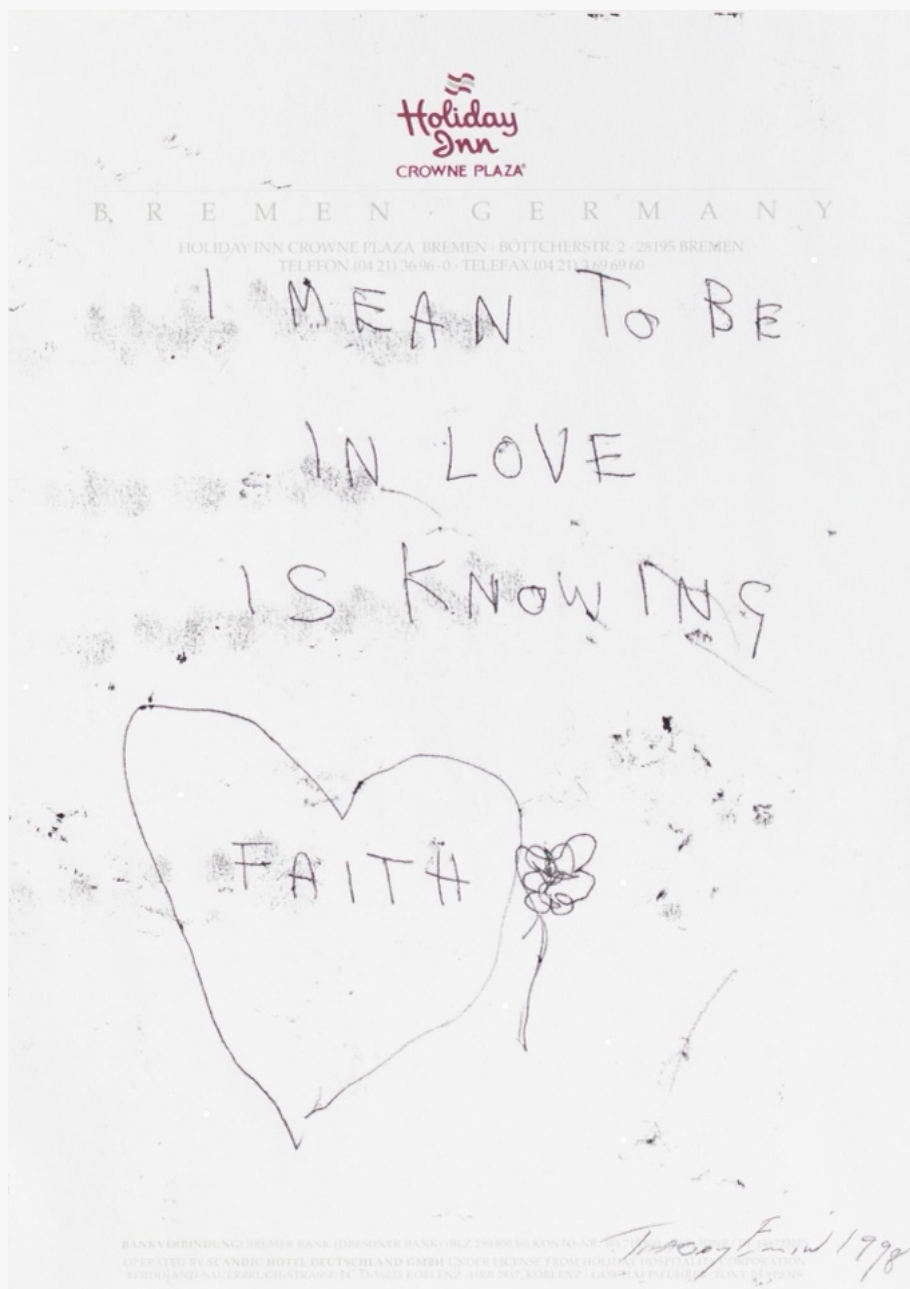 Holiday
Inn
CROWNE PLAZA®
BREMEN · GERMANY
HOLIDAY INN CROWNE PLAZA BREMEN · BÖTTCHERSTR. 2 · 28195 BREMEN
TELEFON (04 21) 36 96-0 · TELEFAX (04 21) 3 69 69 60
I MEAN TO BE
IN LOVE
IS KNOWING
FAITH
BANKVERBINDUNG: BREMER BANK (DRESDNER BANK) (BLZ
Tracey Emin 1998
OPERATED BY SCANDIC HOTEL DEUTSCHLAND GMBH UNDER LICENSE FROM HOLIDAY CORPORATION